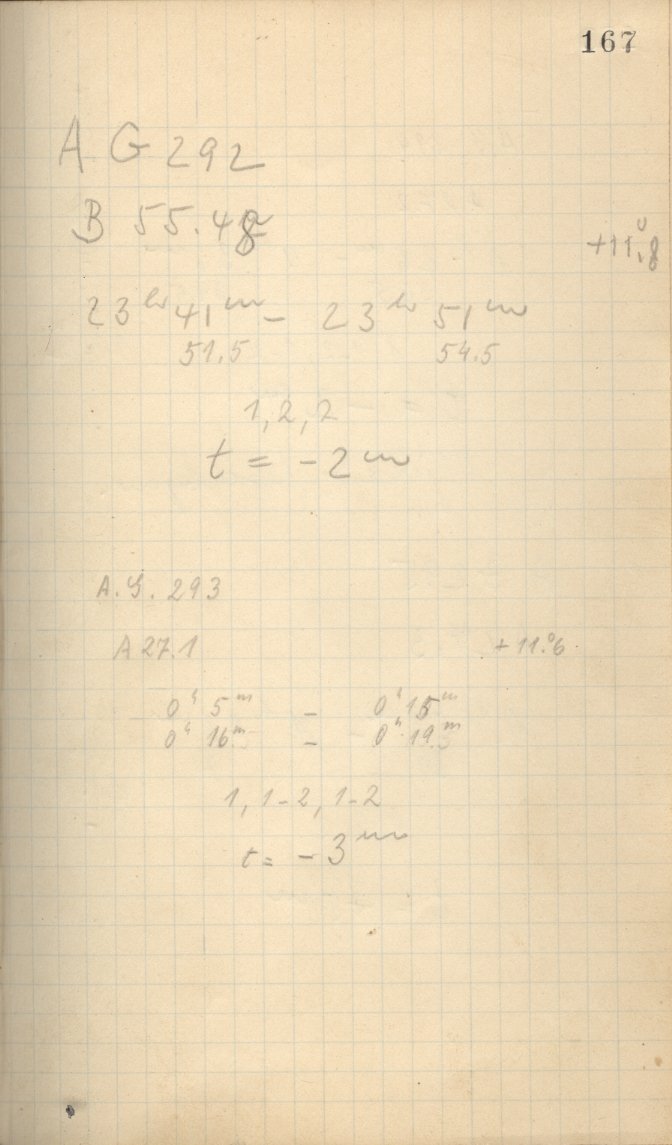 167
A G 292
B 55.48
+11.°8
23 hr 41 m - 23 hr 51 m
51.5 54.5
1, 2, 2
t = -2 m
A.G. 293
A 27.1 +11.°6
0 h 5 m - 0 h 15 m
0 h 16 m - 0 h 19 m
1, 1-2, 1-2
t = -3 m